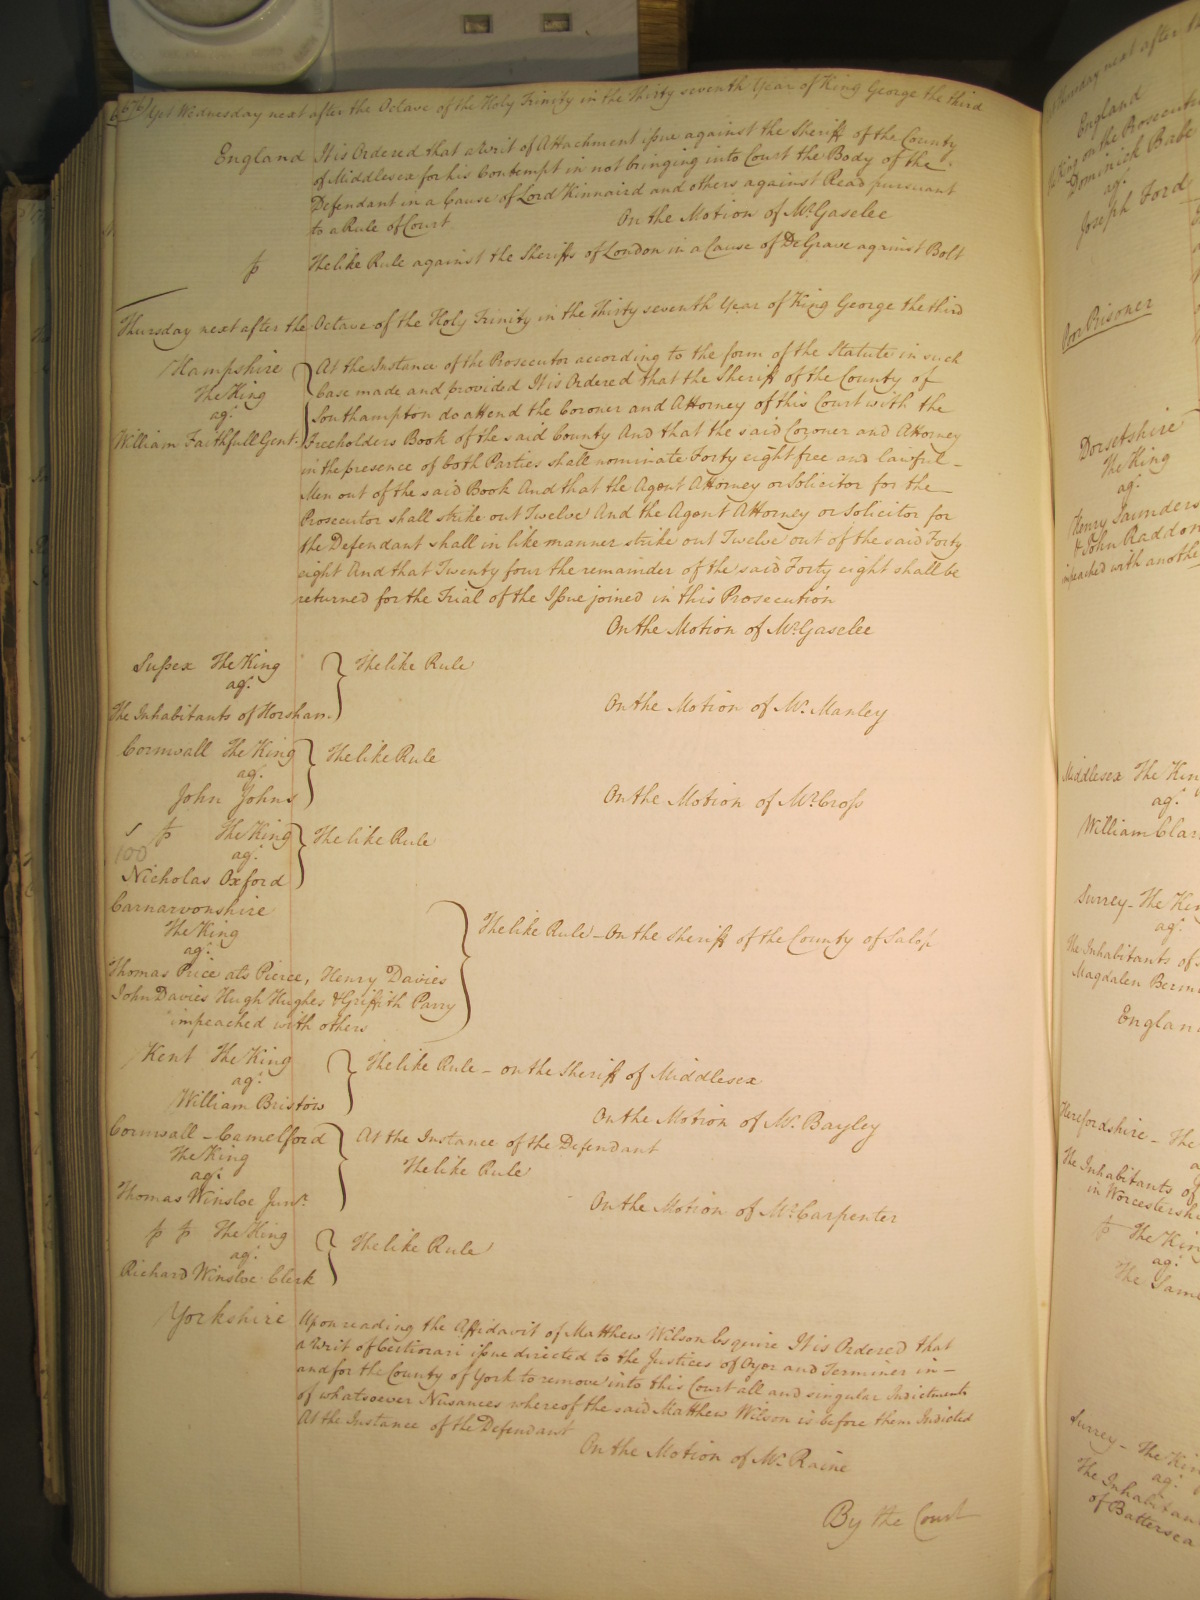 Yet Wednesday next after the Octave of the Holy Trinity in the Thirty seventh Year of King George the third
England It is Ordered that a Writ of Attachment issue against the Sheriff of the County
of Middlesex for his Contempt in not bringing into Court the Body of the
Defendant in a Cause of Lord Kinnaird and others against Read pursuant
to a Rule of Court
On the Motion of Mr. Gaselee
The like Rule against the Sheriffs of London in a Cause of De Grave against Bolt
Thursday next after the Octave of the Holy Trinity in the Thirty seventh Year of King George the third
Hampshire
The King
agt.
William Faithfull Gent.
At the Instance of the Prosecutor according to the form of the Statute in such
Case made and provided It is Ordered that the Sheriff of the County of
Southampton do attend the Coroner and Attorney of this Court with the
Freeholders Book of the said County And that the said Coroner and Attorney
in the presence of both Parties shall nominate Forty eight free and lawful
Men out of the said Book And that the Agent Attorney or Solicitor for the
Prosecutor shall strike out Twelve And the Agent Attorney or Solicitor for
the Defendant shall in like manner strike out Twelve out of the said Forty
eight And that Twenty four the remainder of the said Forty eight shall be
returned for the Trial of the Issue joined in this Prosecution
On the Motion of Mr. Gaselee
Sussex The King
agt.
The Inhabitants of Horsham
The like Rule
On the Motion of Mr. Manley
Cornwall The King
agt.
John Johns
The like Rule
On the Motion of Mr. Cross
The King
100 agt.
Nicholas Oxford
The like Rule
Carnarvonshire
The King
agt.
Thomas Price ats Pierce, Henry Davies
John Davies Hugh Hughes & Griffith Parry
impeached with others
The like Rule - On the Sheriff of the County of Salop
Kent The King
agt.
William Bristow
The like Rule - on the Sheriff of Middlesex
On the Motion of Mr. Bayley
Cornwall - Camelford
The King
agt.
Thomas Winsloe Junr.
At the Instance of the Defendant
The like Rule
On the Motion of Mr. Carpenter
The King
agt.
Richard Winsloe Clerk
The like Rule
Yorkshire Upon reading the Affidavit of Matthew Wilson Esquire It is Ordered that
a Writ of Certiorari issue directed to the Justices of Oyer and Terminer in
and for the County of York to remove into this Court all and singular Indictments
of whatsoever Nusances whereof the said Matthew Wilson is before them Indicted
At the Instance of the Defendant
On the Motion of Mr. Raine
By the Court
Thursday next after
England
The King on the Prosecution
Dominick Babe
agt.
Joseph Ford
Poor Prisoner
Dorsetshire
The King
agt.
Henry Saunders
& John Raddon
impeached with another
Middlesex The Kin
agt.
William Clar
Surrey - The Kin
agt.
The Inhabitants of
Magdalen Bermo
England
Herefordshire - The
The Inhabitants of
in Worcestershi
The Kin
agt.
The Same
Surrey - The Kin
agt.
The Inhabitan
of Battersea